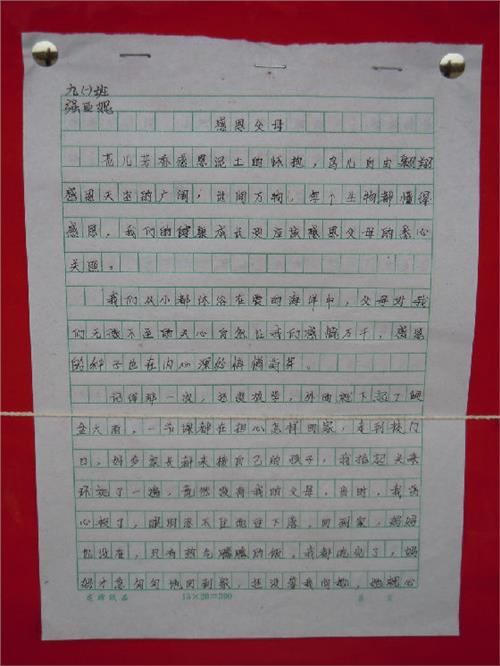 九(一)班
强亚妮
感恩父母
花儿芳香感恩泥土的怀抱,鸟儿自由翱翔
感恩天空的广阔,世间万物,每个生物都懂得
感恩,我们的健康成长更应该感恩父母的悉心
关照。
我们从小都沐浴在爱的海洋中,父母对我
们无微不至的关心自然让我们感慨万千,感恩
的种子也在内心深处悄悄
记得那一次,还没放学,外面就下起了倾
盆大雨,一节课都在担心怎样回家,走到校门
口,好多家长都来接自己的孩子,我抬起头来
环视了一遍,竟然没有我的父母,当时,我伤
心极了,眼泪忍不住地往下落,回到家,妈妈
也没在,只有热气腾腾的饭,我都吃完了,妈
妈才急匆匆地回到家,还没等我问她,她就心
15×20=300